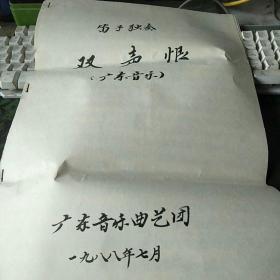 笛子独奏
双声恨
(广东音乐)
广东音乐曲艺团
一九八八年七月